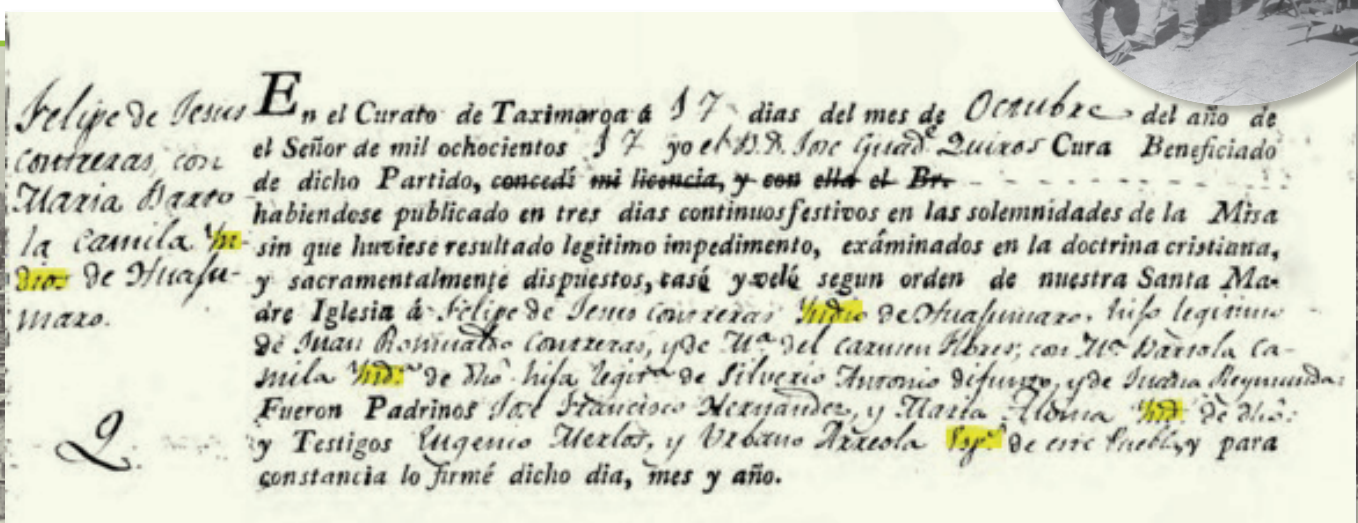 Felipe de Jesus
contreras, con
Maria Barto
la Camila Yn-
dios de Huafu-
maro.
2
En el Curato de Taximaroa á 17 dias del mes de Octubre del año de
el Señor de mil ochocientos 17 yo el B. D. Jose Guad. Quiros Cura Beneficiado
de dicho Partido, concedi mi licencia, y con ella el Br.
habiendose publicado en tres dias continuos festivos en las solemnidades de la Misa
sin que huviese resultado legitimo impedimento, exáminados en la doctrina cristiana,
y sacramentalmente dispuestos, casé y velé segun orden de nuestra Santa Ma-
dre Iglesia á Felipe de Jesus Contreras Yndio de Huafumaro, hifo legitimo
de Juan Romualdo Contreras, y de Ma. del Carmen Flores; con Ma. Bartola Ca-
mila Ynd.a de dho. hifa legit.a de Silverio Antonio difunto, y de Juana Reymunda:
Fueron Padrinos José Francisco Hernandez, y Maria Ynd. de dho.
y Testigos Eugenio Merlos, y Urbano Arreola Esp.s de este Pueblo, y para
constancia lo firmé dicho dia, mes y año.